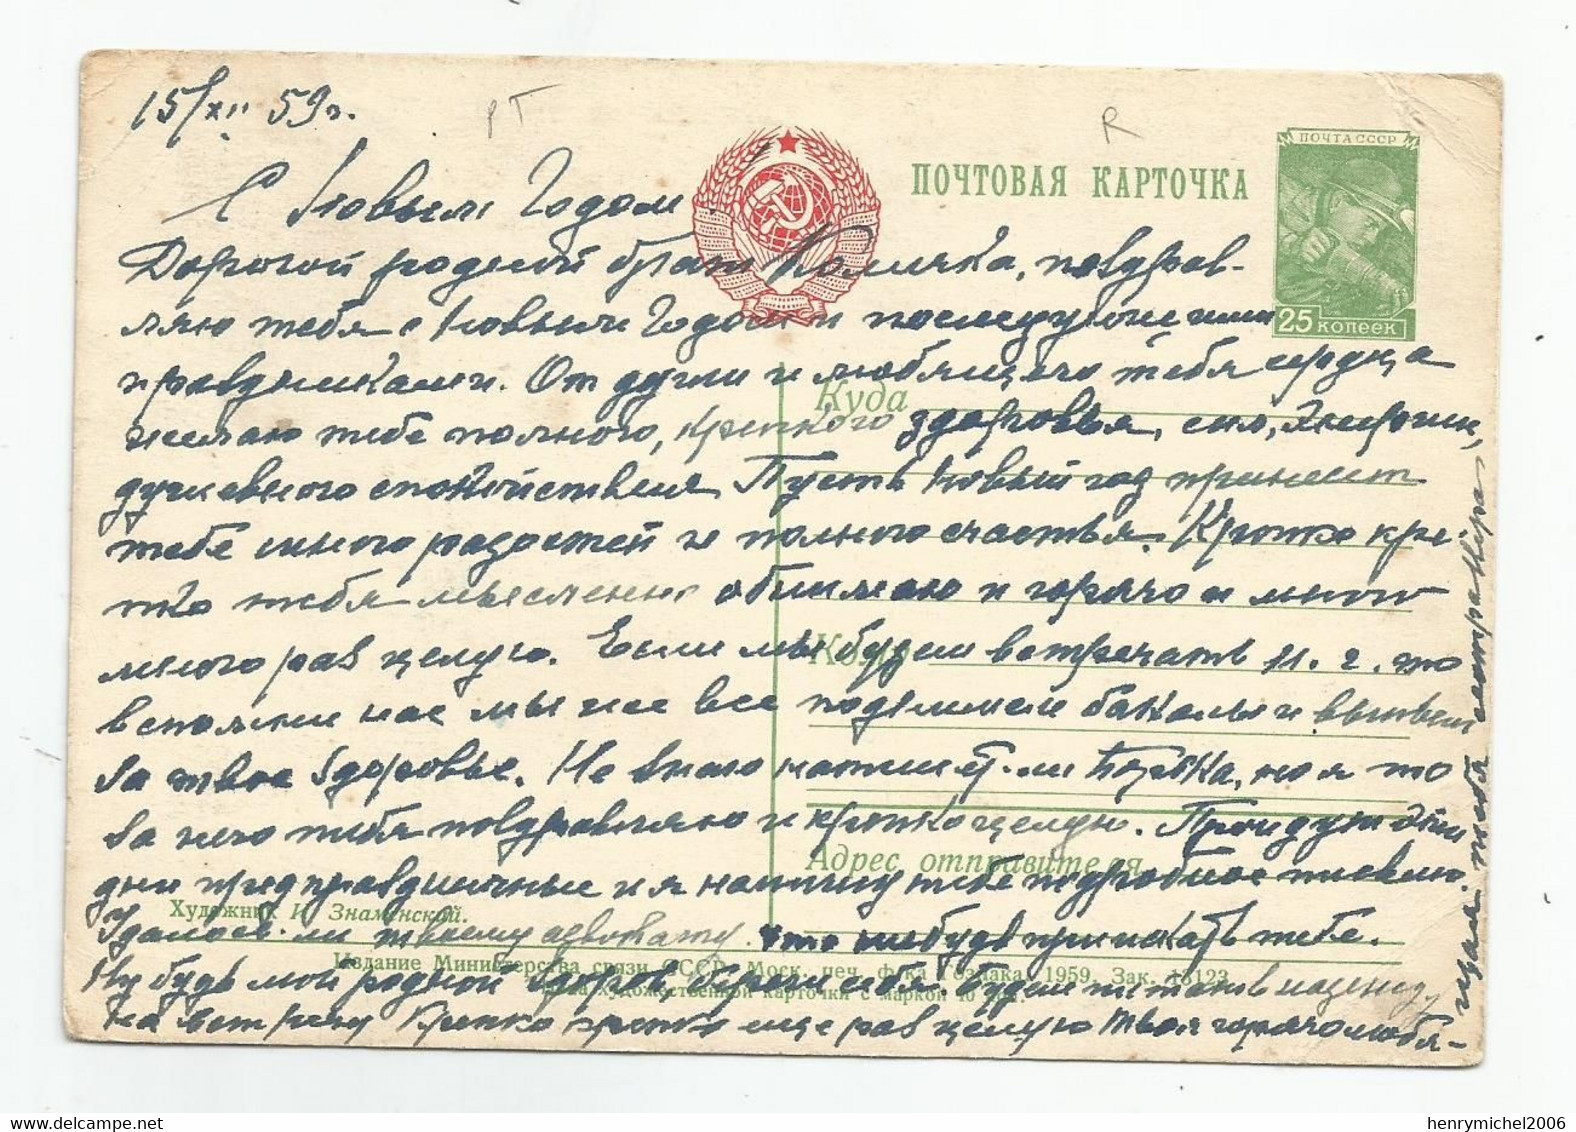 15/XII 59г.
С Новым Годом!
ПОЧТОВАЯ КАРТОЧКА
ПОЧТА СССР
25 КОПЕЕК
Дорогой родной брат Количка, поздрав-
ляю тебя с Новым Годом и последующими
праздниками. От души и любящего тебя сердца
желаю тебе полного, крепкого здоровья, сил, энергии,
душевного спокойствия. Пусть Новый год принесет
тебе много радостей и полного счастья. Крепко кре-
пко тебя мысленно обнимаю и горячо и много
много раз целую. Если мы будем встречать н. г. то
вспомни нас мы же все поднимем бокалы и выпьем
за твое здоровье. Не знаю напишет-ли Борька, но я то
за него тебя поздравляю и крепко целую. Пройдут эти
дни предпраздничные и я напишу тебе подробное письмо.
Удалось-ли твоему адвокату что нибудь приискать тебе.
Ну будь мой родной здоров, береги себя. Будем питать надежду
на встречу Крепко крепко еще раз целую Твоя горячо любя-
щая тебя сестра Кира
Куда
Кому
Адрес отправителя
Художник И. Знаменской.
Издание Министерства связи СССР. Моск. печ. ф-ка Гознака. 1959. Зак. 18123
художественной карточки с маркой 40 коп.
РТ
R
henrymichel2006